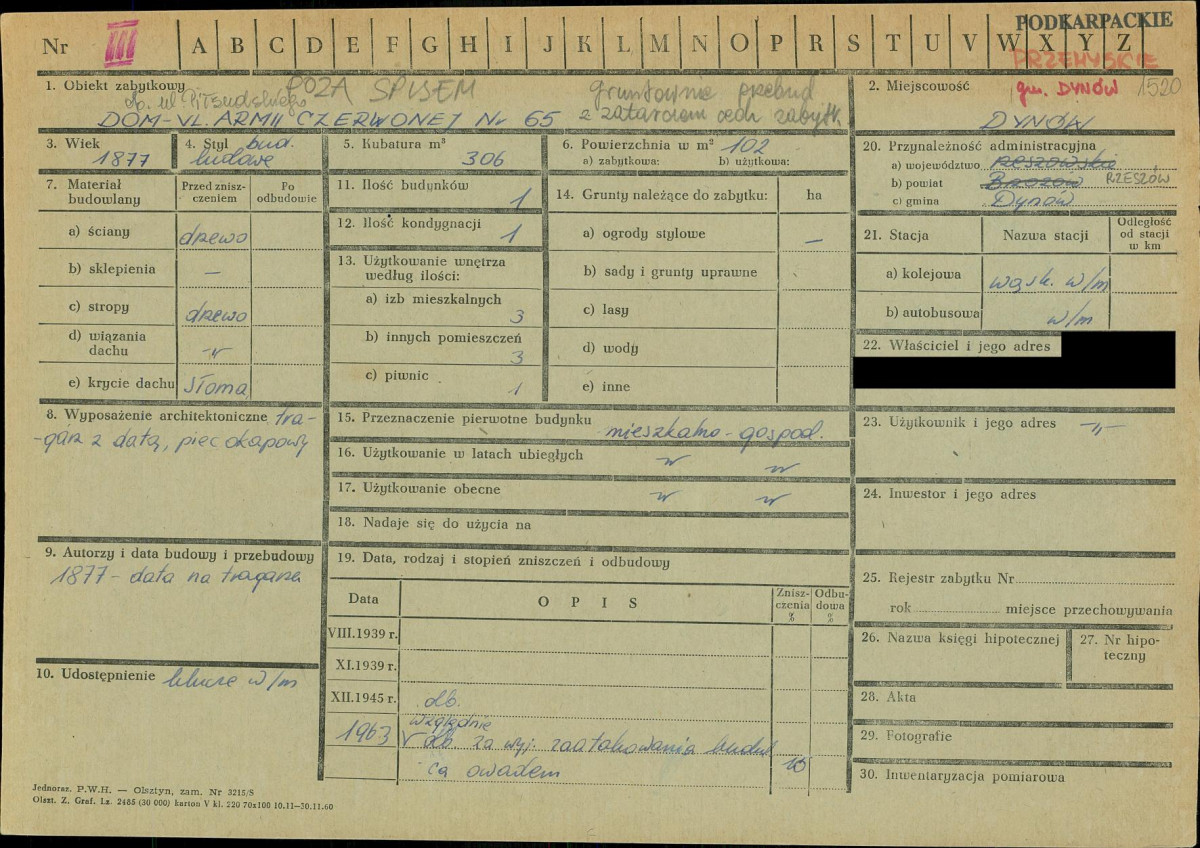 PODKARPACKIE
Nr III A B C D E F G H I J K L M N O P R S T U V W X Y Z
PRZEMYSKIE
1. Obiekt zabytkowy POZA SPISEM gruntownie przebud
ob. ul Piłsudskiego z zatarciem cech zabytk.
DOM - UL. ARMII CZERWONEJ Nr 65
2. Miejscowość gm. DYNÓW 1520
DYNÓW
3. Wiek
1877
4. Styl bud.
ludowe
5. Kubatura m³
306
6. Powierzchnia w m² 102
a) zabytkowa: b) użytkowa:
20. Przynależność administracyjna
a) województwo rzeszowskie
b) powiat Brzozów RZESZÓW
c) gmina Dynów
7. Materiał budowlany
Przed zniszczeniem
Po odbudowie
a) ściany drewo
b) sklepienia —
c) stropy drewo
d) wiązania dachu -"-
e) krycie dachu słoma
11. Ilość budynków 1
12. Ilość kondygnacji 1
13. Użytkowanie wnętrza
według ilości:
a) izb mieszkalnych
3
b) innych pomieszczeń
3
c) piwnic 1
14. Grunty należące do zabytku: ha
a) ogrody stylowe —
b) sady i grunty uprawne
c) lasy
d) wody
e) inne
21. Stacja Nazwa stacji Odległość od stacji w km
a) kolejowa wąsk. w/m
b) autobusowa w/m
22. Właściciel i jego adres
8. Wyposażenie architektoniczne tra-
-garz z datą, piec okapowy
15. Przeznaczenie pierwotne budynku
mieszkalno - gospod.
16. Użytkowanie w latach ubiegłych
-"- -"-
17. Użytkowanie obecne
-"- -"-
18. Nadaje się do użycia na
23. Użytkownik i jego adres -"-
24. Inwestor i jego adres
9. Autorzy i data budowy i przebudowy
1877 - data na tragarza
10. Udostępnienie klucze w/m
19. Data, rodzaj i stopień zniszczeń i odbudowy
Data OPIS Zniszczenia % Odbudowa %
VIII.1939 r.
XI.1939 r.
XII.1945 r. db.
względnie
1963 v db. za wyj. zaatakowania budul
ca owadem 10
25. Rejestr zabytku Nr
rok miejsce przechowywania
26. Nazwa księgi hipotecznej
27. Nr hipoteczny
28. Akta
29. Fotografie
30. Inwentaryzacja pomiarowa
Jednoraz. P.W.H. — Olsztyn, zam. Nr 3215/S
Olszt. Z. Graf. Lz. 2485 (30 000) karton V kl. 220 70x100 10.11—30.11.60